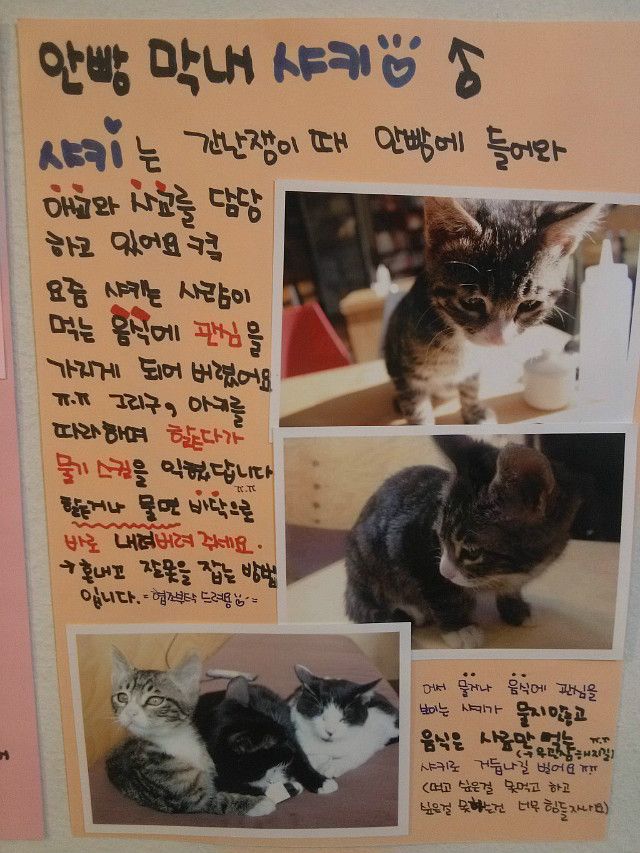 안빵 막내 샤키
샤키는 갓난쟁이 때 안빵에 들어와
애교와 사교를 담당
하고 있어요 ㅋㅋ
요즘 샤키는 사람이
먹는 음식에 관심을
가지게 되어 버렸어요
ㅠ.ㅠ 그리구, 아키를
따라하며 핥다가
물기 스킬을 익혔답니다
ㅠ.ㅠ
핥거나 물면 바닥으로
바로 내려버려 주세요.
혼내고 잘못을 잡는 방법
입니다. 협조부탁 드려용
어서 물거나 음식에 관심을
보이는 샤키가 물지않고
음식은 사료만 먹는 ㅠ.ㅠ
샤키로 거듭나길 빌어요 ㅠㅠ
(먹고 싶은걸 못먹고 하고
싶은걸 못하는건 너무 힘들자나요)